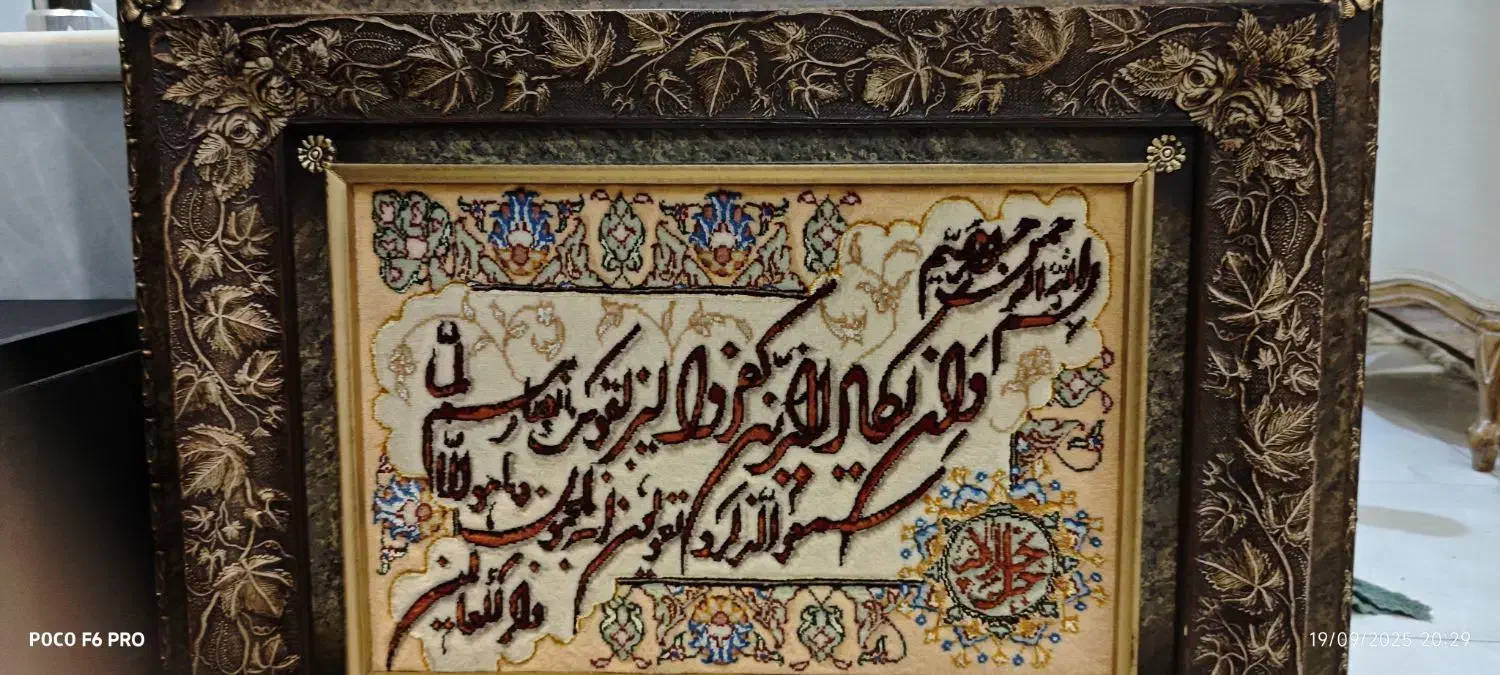 بسم الله الرحمن الرحیم
وان یکاد الذین کفروا لیزلقونک بابصارهم لما
سمعوا الذکر و یقولون انه لمجنون و ما هو الا
ذکر للعالمین
POCO F6 PRO
19/09/2025 20:29